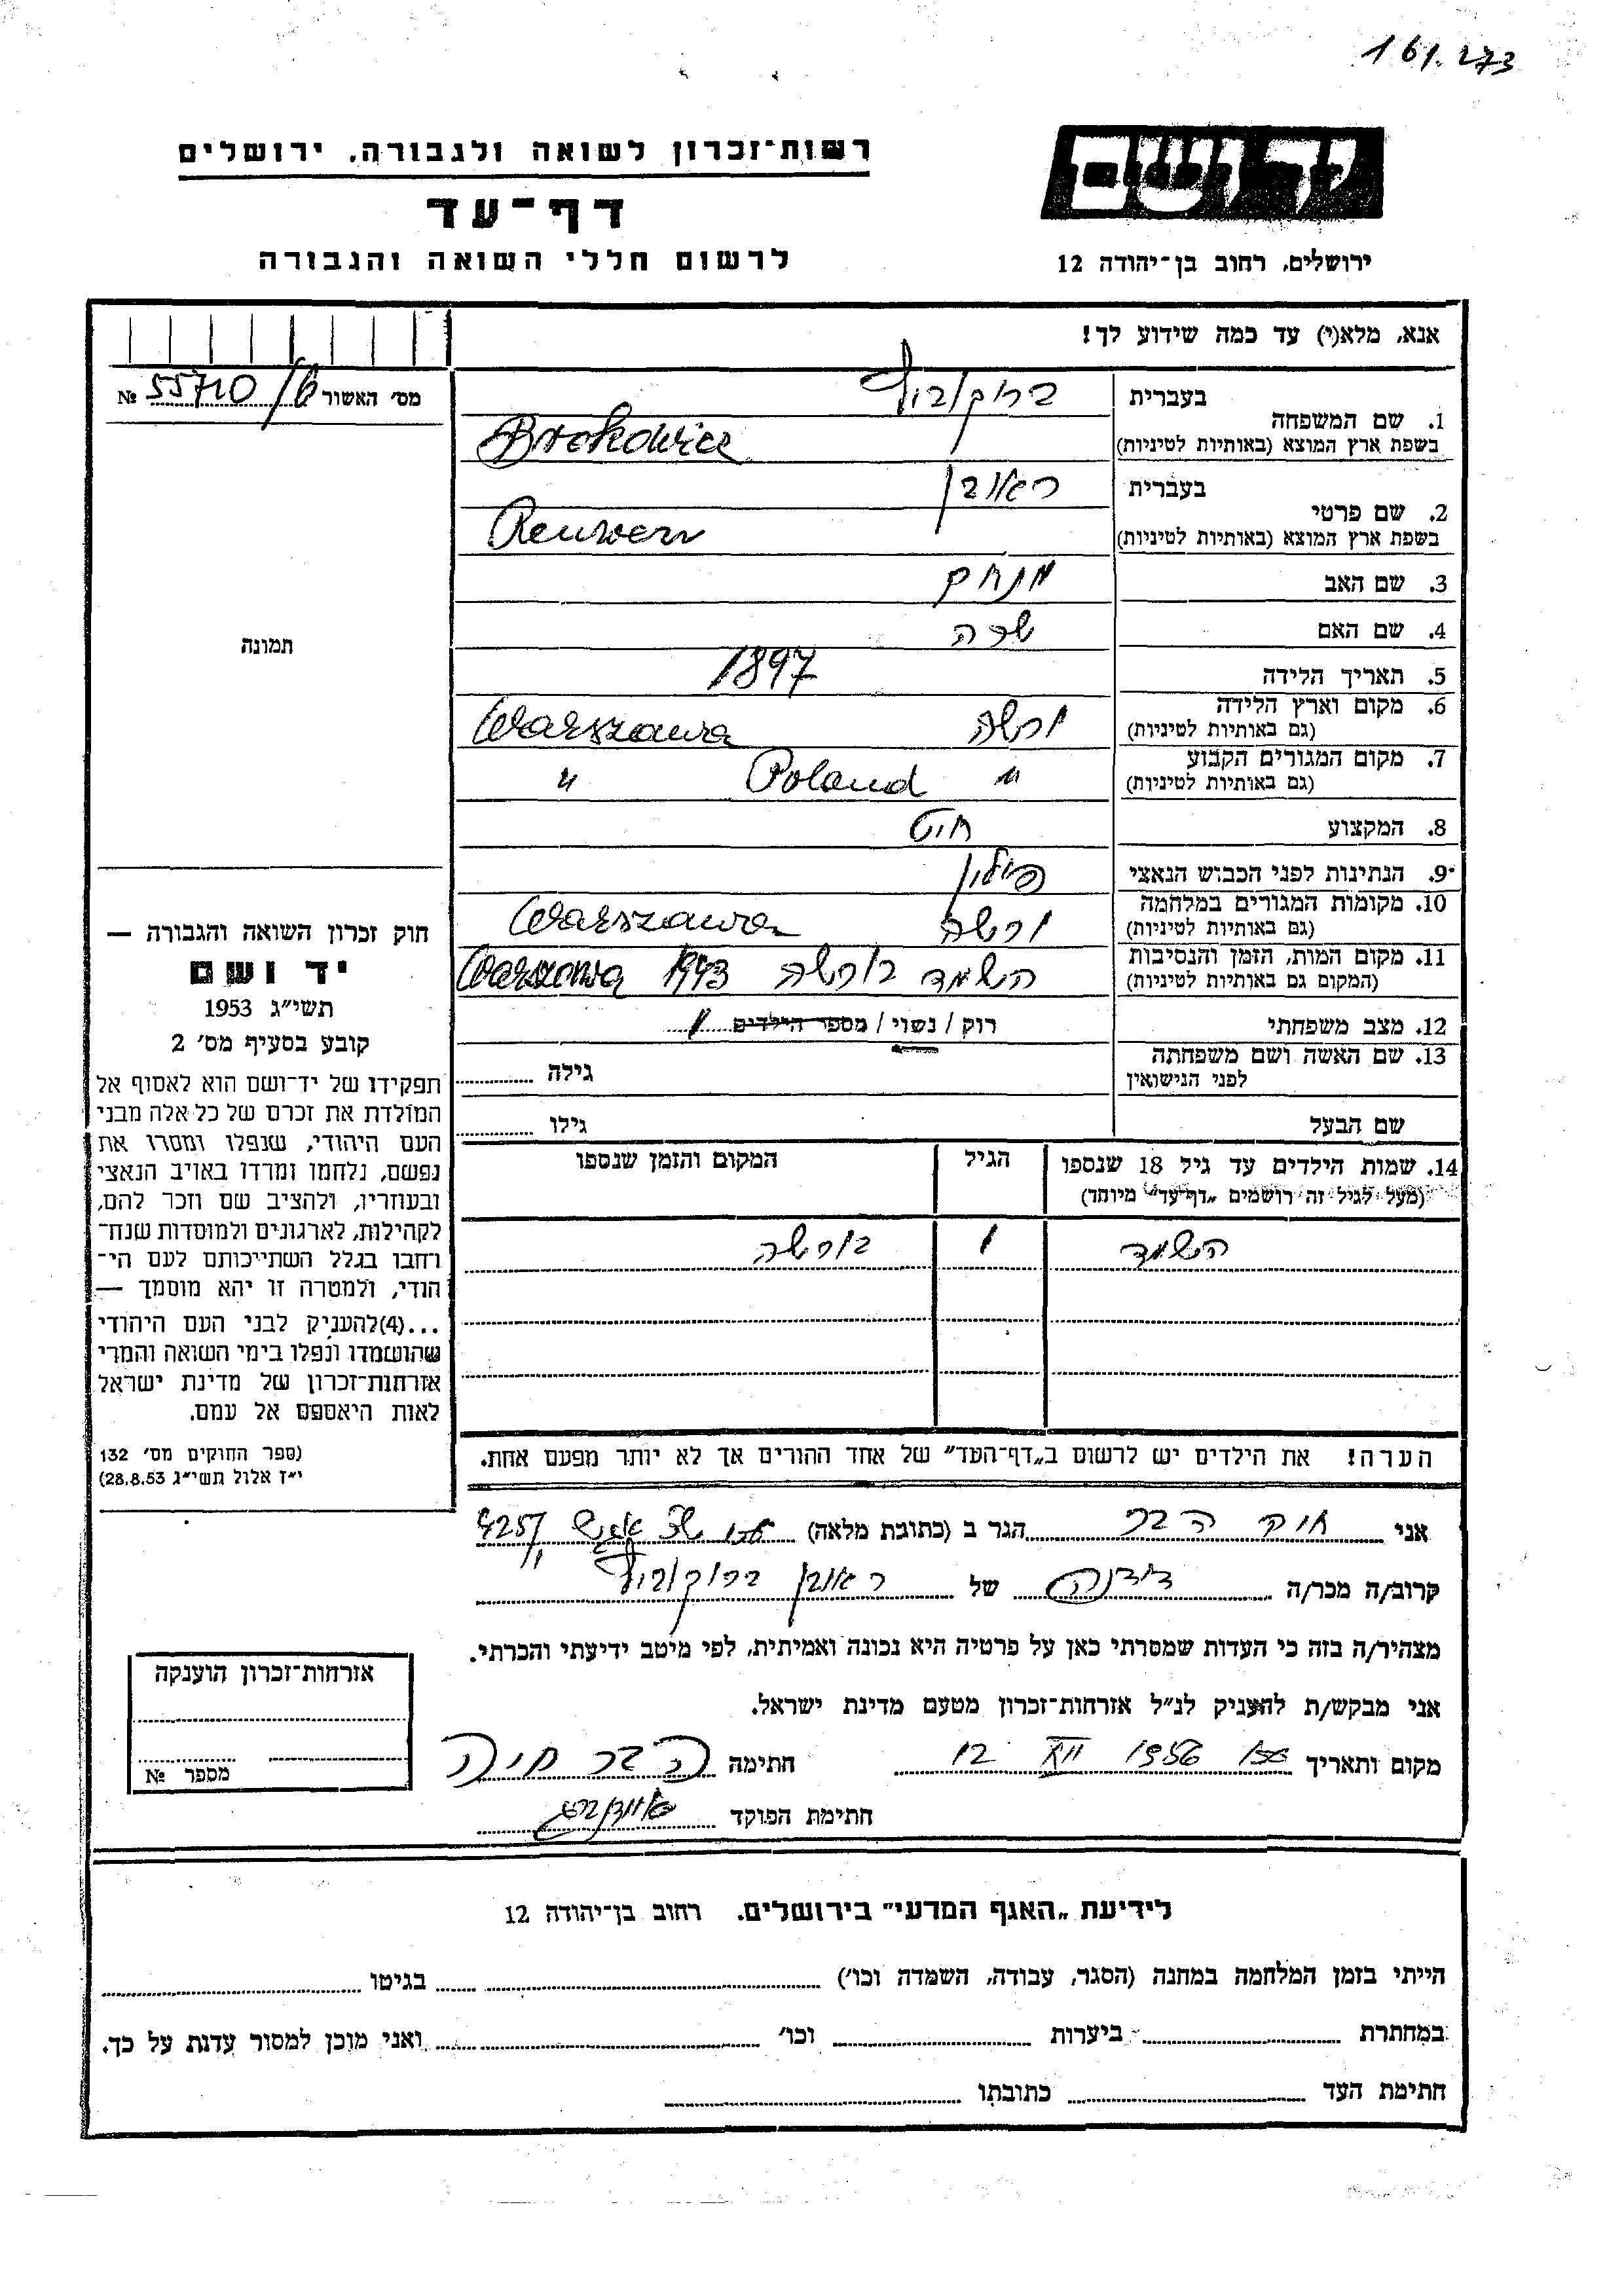 161.273
רשות־זכרון לשואה ולגבורה, ירושלים
דף־עד
לרשום חללי השואה והגבורה
יד ושם
ירושלים, רחוב בן־יהודה 12
אנא, מלא(י) עד כמה שידוע לך!
מס׳ האשור 55710/6 №
תמונה
1. שם המשפחה
בעברית ברוקוביץ
בשפת ארץ המוצא (באותיות לטיניות) Brokowicz
2. שם פרטי
בעברית ראובן
בשפת ארץ המוצא (באותיות לטיניות) Reuwen
3. שם האב מנחם
4. שם האם שרה
5. תאריך הלידה 1897
6. מקום וארץ הלידה ורשה Warszawa
(גם באותיות לטיניות)
7. מקום המגורים הקבוע " Poland "
(גם באותיות לטיניות)
8. המקצוע חיט
9. הנתינות לפני הכבוש הנאצי פולין
10. מקומות המגורים במלחמה ורשה Warszawa
(גם באותיות לטיניות)
11. מקום המות, הזמן והנסיבות השמד בורשה 1943 Warszawa
(המקום גם באותיות לטיניות)
12. מצב משפחתי רוק / נשוי / מספר הילדים 1
13. שם האשה ושם משפחתה
לפני הנישואין גילה
שם הבעל גילו
14. שמות הילדים עד גיל 18 שנספו הגיל המקום והזמן שנספו
(מעל לגיל זה רושמים „דף־עד״ מיוחד)
השמד 1 בורשה
הערה! את הילדים יש לרשום ב„דף־העד״ של אחד ההורים אך לא יותר מפעם אחת.
חוק זכרון השואה והגבורה —
יד ושם
תשי״ג 1953
קובע בסעיף מס׳ 2
תפקידו של יד־ושם הוא לאסוף אל
המולדת את זכרם של כל אלה מבני
העם היהודי, שנפלו ומסרו את
נפשם, נלחמו ומרדו באויב הנאצי
ובעוזריו, ולהציב שם וזכר להם,
לקהילות, לארגונים ולמוסדות שנח־
רחבו בגלל השתייכותם לעם הי־
הודי, ולמטרה זו יהא מוסמך —
...(4)להעניק לבני העם היהודי
שהושמדו ונפלו בימי השואה והמרי
אזרחות־זכרון של מדינת ישראל
לאות היאספם אל עמם.
(ספר החוקים מס׳ 132
י״ז אלול תשי״ג 28.8.53)
אני הגר ב (כתובת מלאה)
קרוב/ה מכר/ה של ראובן ברוקוביץ
מצהיר/ה בזה כי העדות שמסרתי כאן על פרטיה היא נכונה ואמיתית, לפי מיטב ידיעתי והכרתי.
אני מבקש/ת להעניק לנ״ל אזרחות־זכרון מטעם מדינת ישראל.
מקום ותאריך 12 XII 1956 חתימה הבר חיה
חתימת הפוקד
אזרחות־זכרון הוענקה
מספר №
לידיעת „האגף המדעי״ בירושלים. רחוב בן־יהודה 12
הייתי בזמן המלחמה במחנה (הסגר, עבודה, השמדה וכו׳) בגיטו
במחתרת ביערות וכו׳ ואני מוכן למסור עדות על כך.
חתימת העד כתובתו